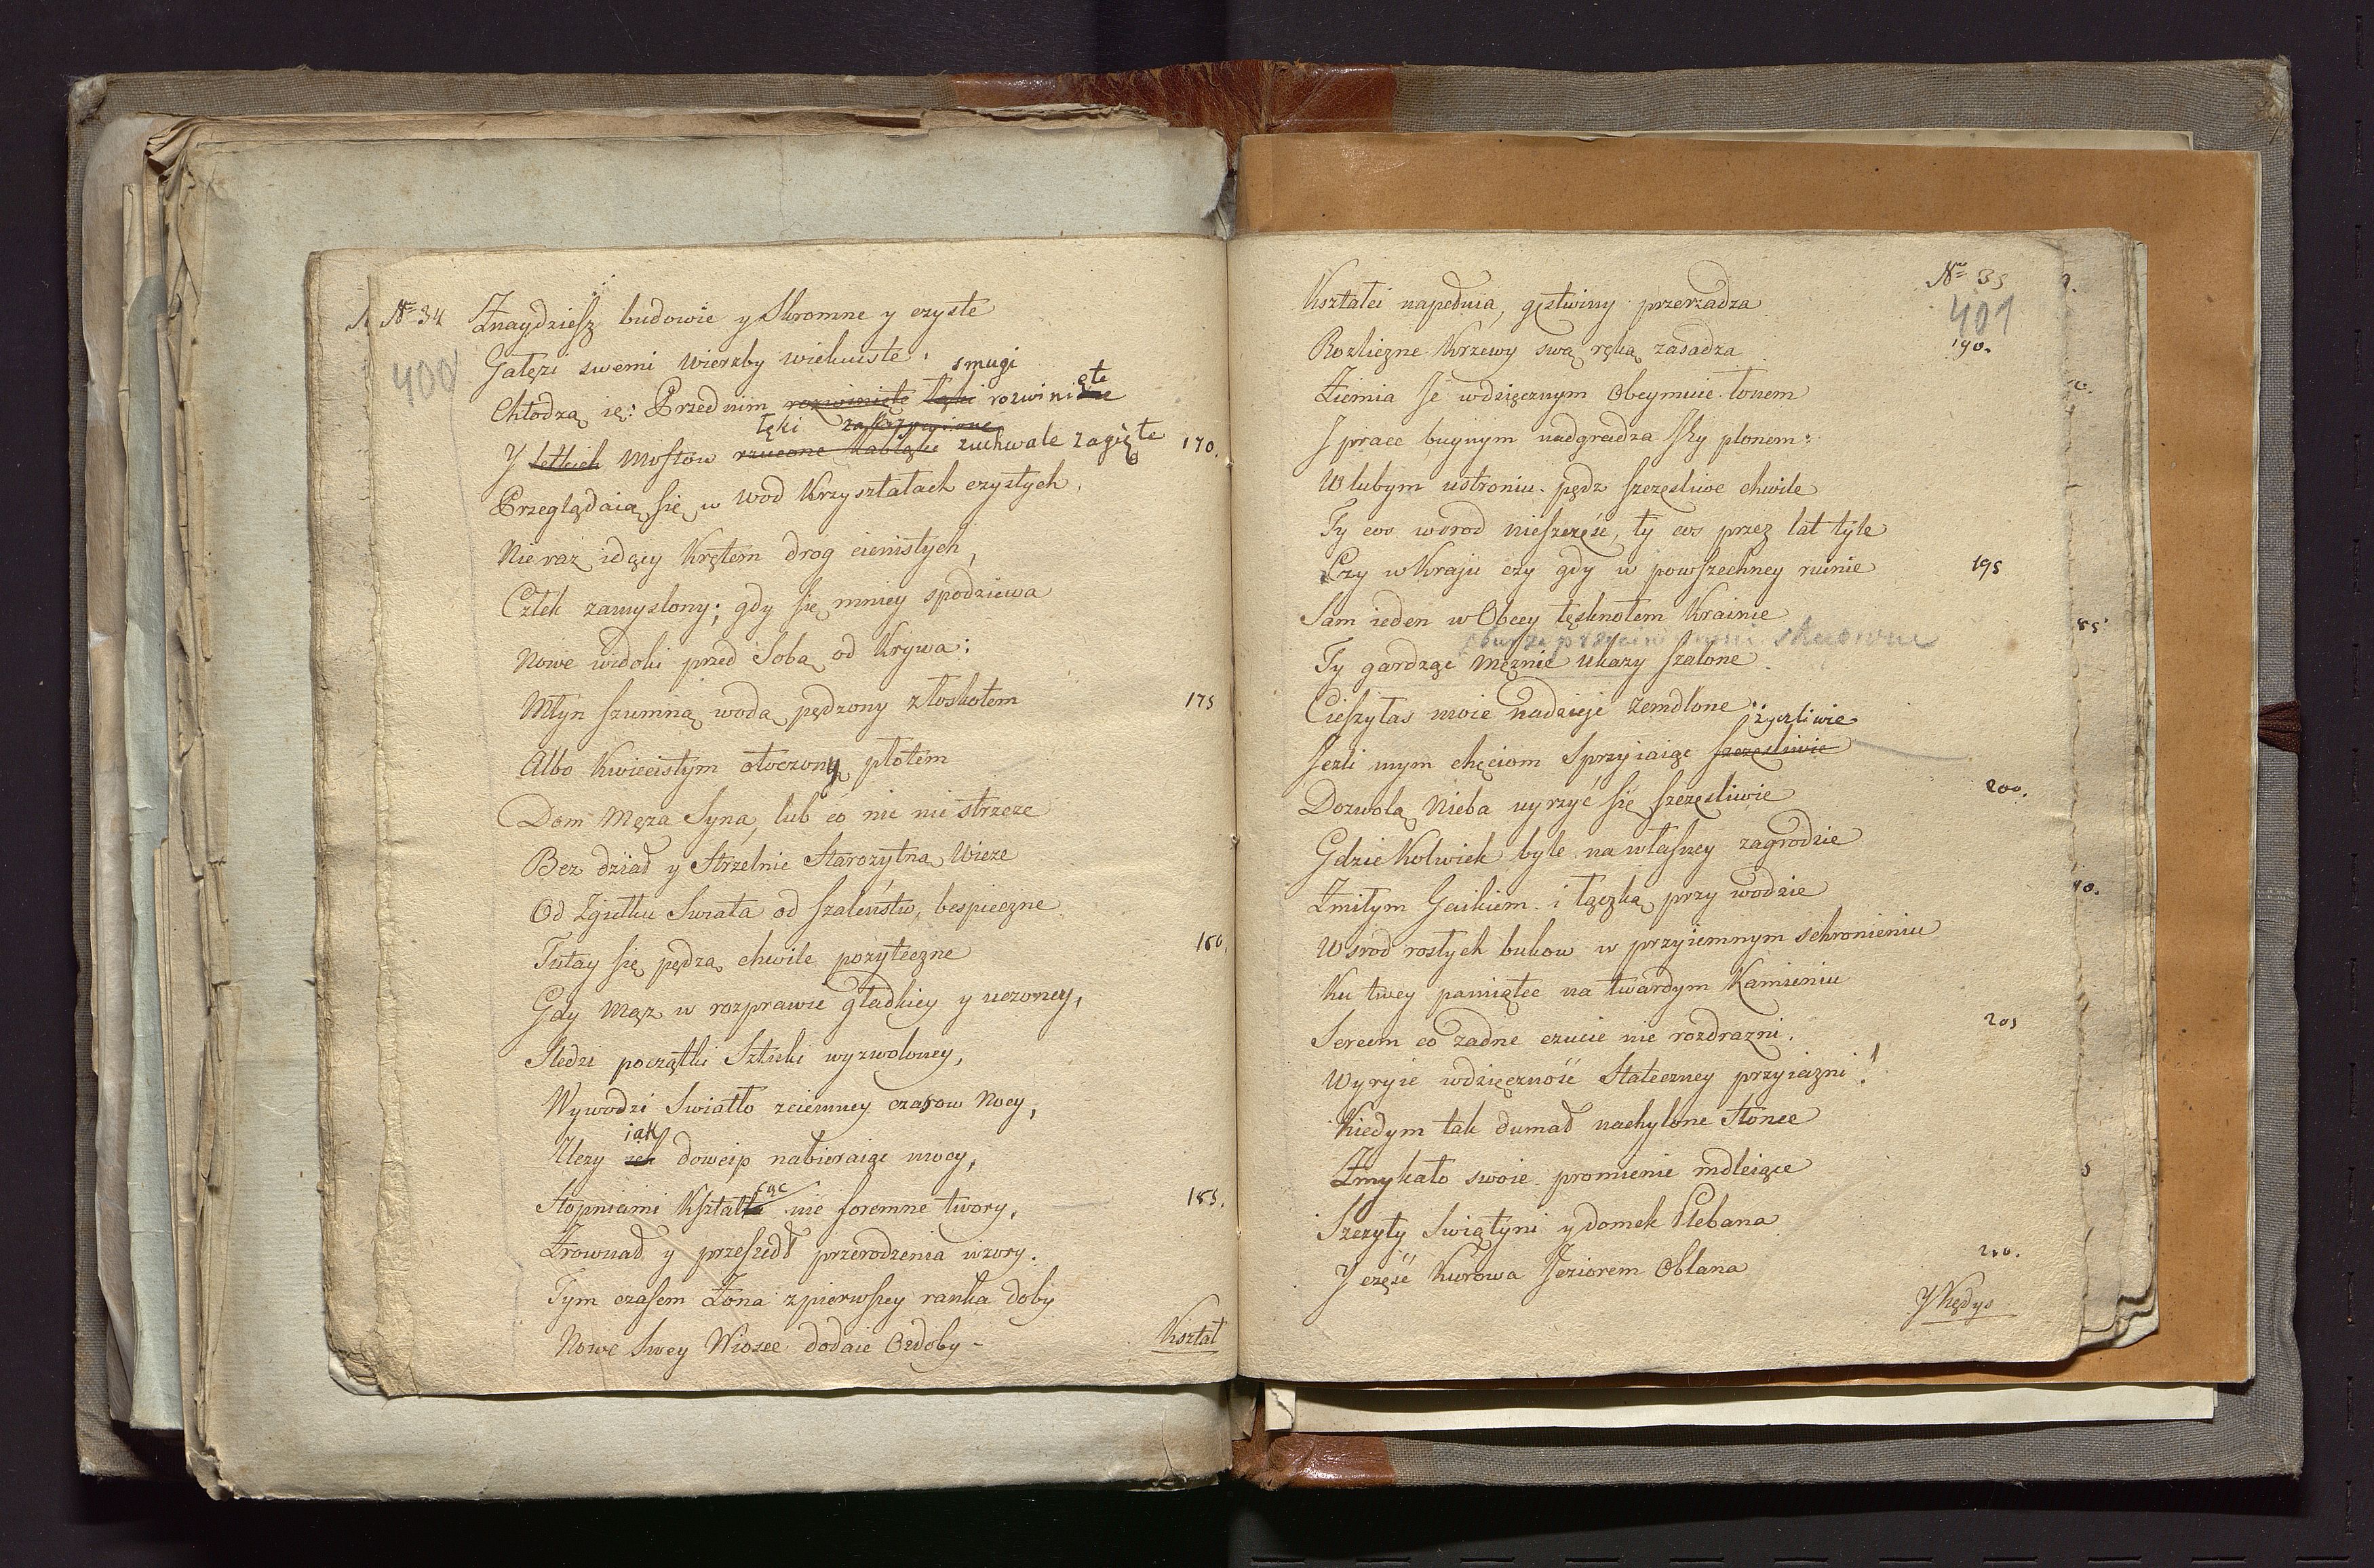 Nro 34
400
Znaydziesz budowie y Skromne y czyste
Gałęzi swemi Wierzby wiekuiste,
smugi
Chłodzą ię: Przed nim rozwinięte łąki rozwinięte
łęki zaskrzypione
Y letkich Mostow rzucone kabłąki zuchwale zagięte 170.
Przeglądaią się w Wod Krzyształach czystych,
Nie raz idący Krętem drog cienistych,
Człek zamyslony; gdy się mniey spodziewa
Nowe widoki przed Sobą od Krywa:
Młyn szumną wodą pędzony z łoskotem 175
Albo Kwiecistym otoczony płotem
Dom Męża Syna, lub co nic nie strzeze
Bez dział y Strzelnic Starozytną Wieze
Od Zgiełku Swiata od szaleństw, bespieczne
Tutay się pędzą chwile pozyteczne 180.
Gdy Mąz w rozprawie gładkiey y uczoney,
Sledzi początki Sztuki wyzwoloney,
Wywodzi Swiatło zciemney czasow Nocy,
iak
Uczy ich dowcip nabieraiąc mocy,
cąc
Stopniami Kształt nie foremne twory, 185.
Zrownał y przeszedł przyrodzenia wzory.
Tym czasem Żona z pierwszey ranka doby
Nowe Swey Wiosce dodaie Ozdoby -
Kształ
Nro 35
401
Kształci napełnia, gęstwiny przerzadza
Rozliczne Krzewy swą ręką zasadza 190.
Ziemia Je wdzięcznym Obeymuie łonem
I prace buynym nadgradza Jky plonem:
W lubym ustroniu pędz szczęsliwe chwile
Ty cos wsrod nieszczęść, ty cos przez lat tyle
Czy w Kraju czy gdy w powszechney ruinie 195
Sam ieden w Obcey tęsknotem Krainie
Ty gardząc męznie Ukazy szalone
Cieszyłas moie nadzieje zemdlone.
życzliwie
Jezli mym chęciom Sprzyiaiąc szczęsliwie
Dozwolą Nieba uyrzyć się szczęsliwie 200.
Gdzie Kolwiek byle na własney zagrodzie
Z miłym Gaikiem i łączką przy wodzie
Wsrod rosłych bukow w przyiemnym schronieniu
Ku twey pamiątce na twardym Kamieniu
Sercem co żadne czucie nie rozdrazni, 205
Wyryie wdzięczność Stateczney przyiazni!
Kiedym tak dumał nachylone Słonce
Zmykało swoie promienie mdleiące
Szczyty Swiątyni y domek Plebana
Y część Kurowa Jeziorem Oblana 210.
Y Kędys